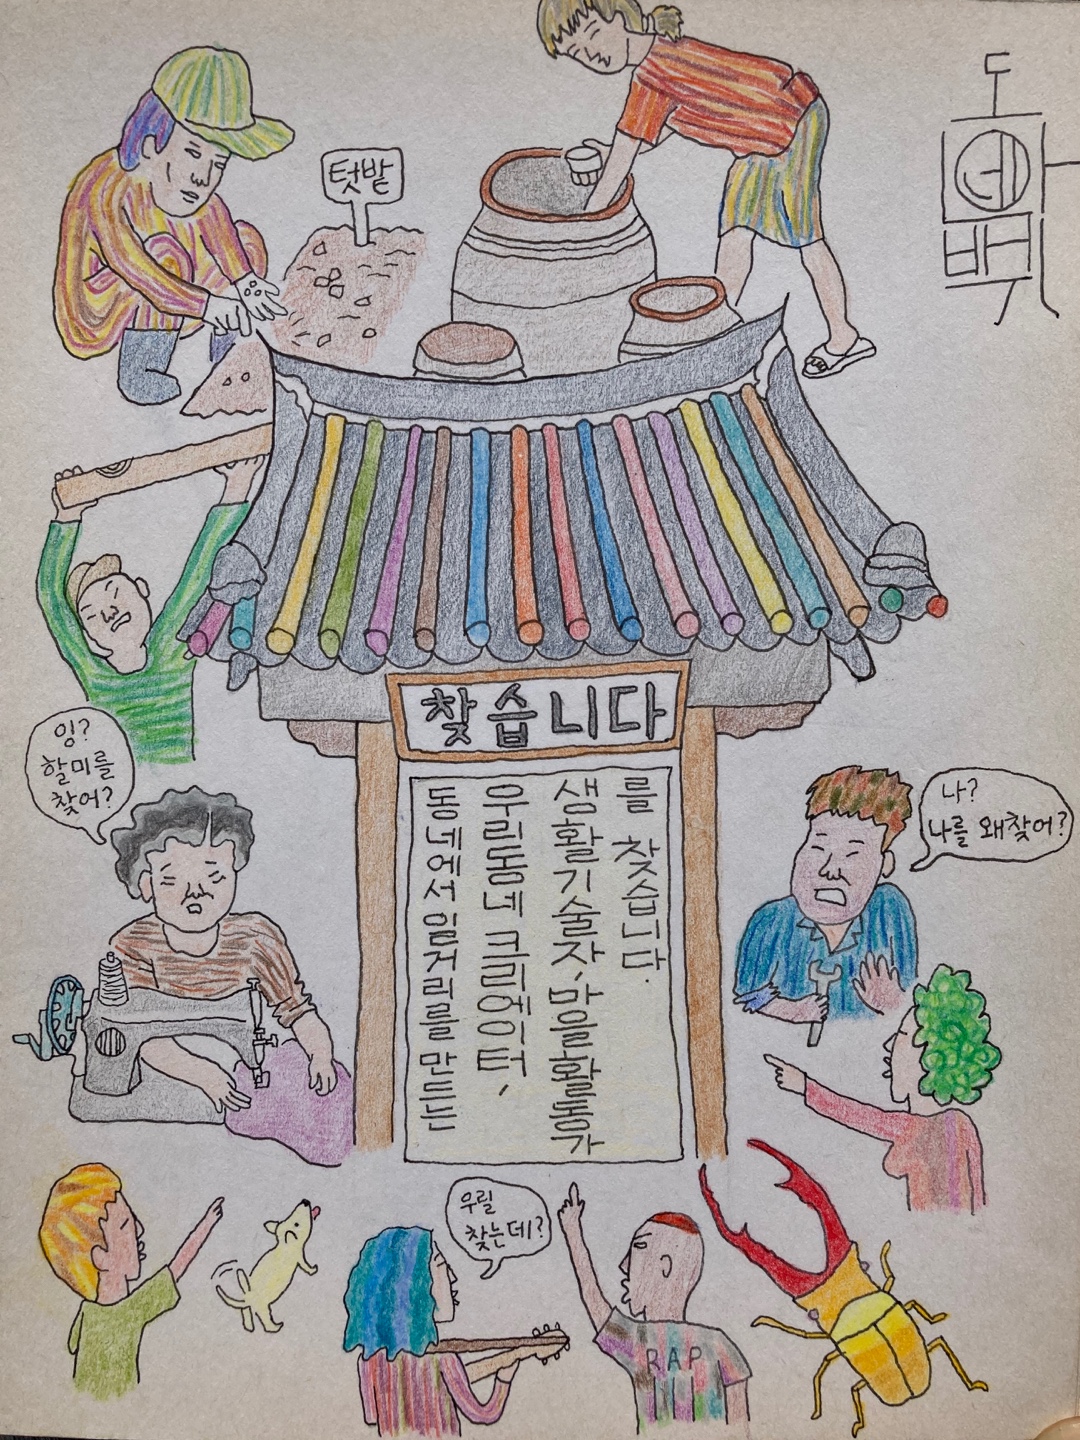 텃밭
찾습니다
동네에서 일거리를 만드는
우리동네 크리에이터,
생활기술자, 마을활동가
를 찾습니다.
잉?
할미를
찾어?
나?
나를 왜찾어?
우릴
찾는데?
RAP